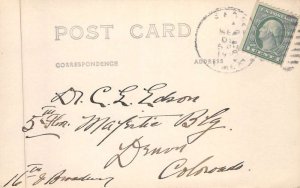 POST CARD
CORRESPONDENCE
ADDRESS
Dr. C. E. Edson
5th Floor Majestic Blg.
Denver
Colorado.
16th & Broadway